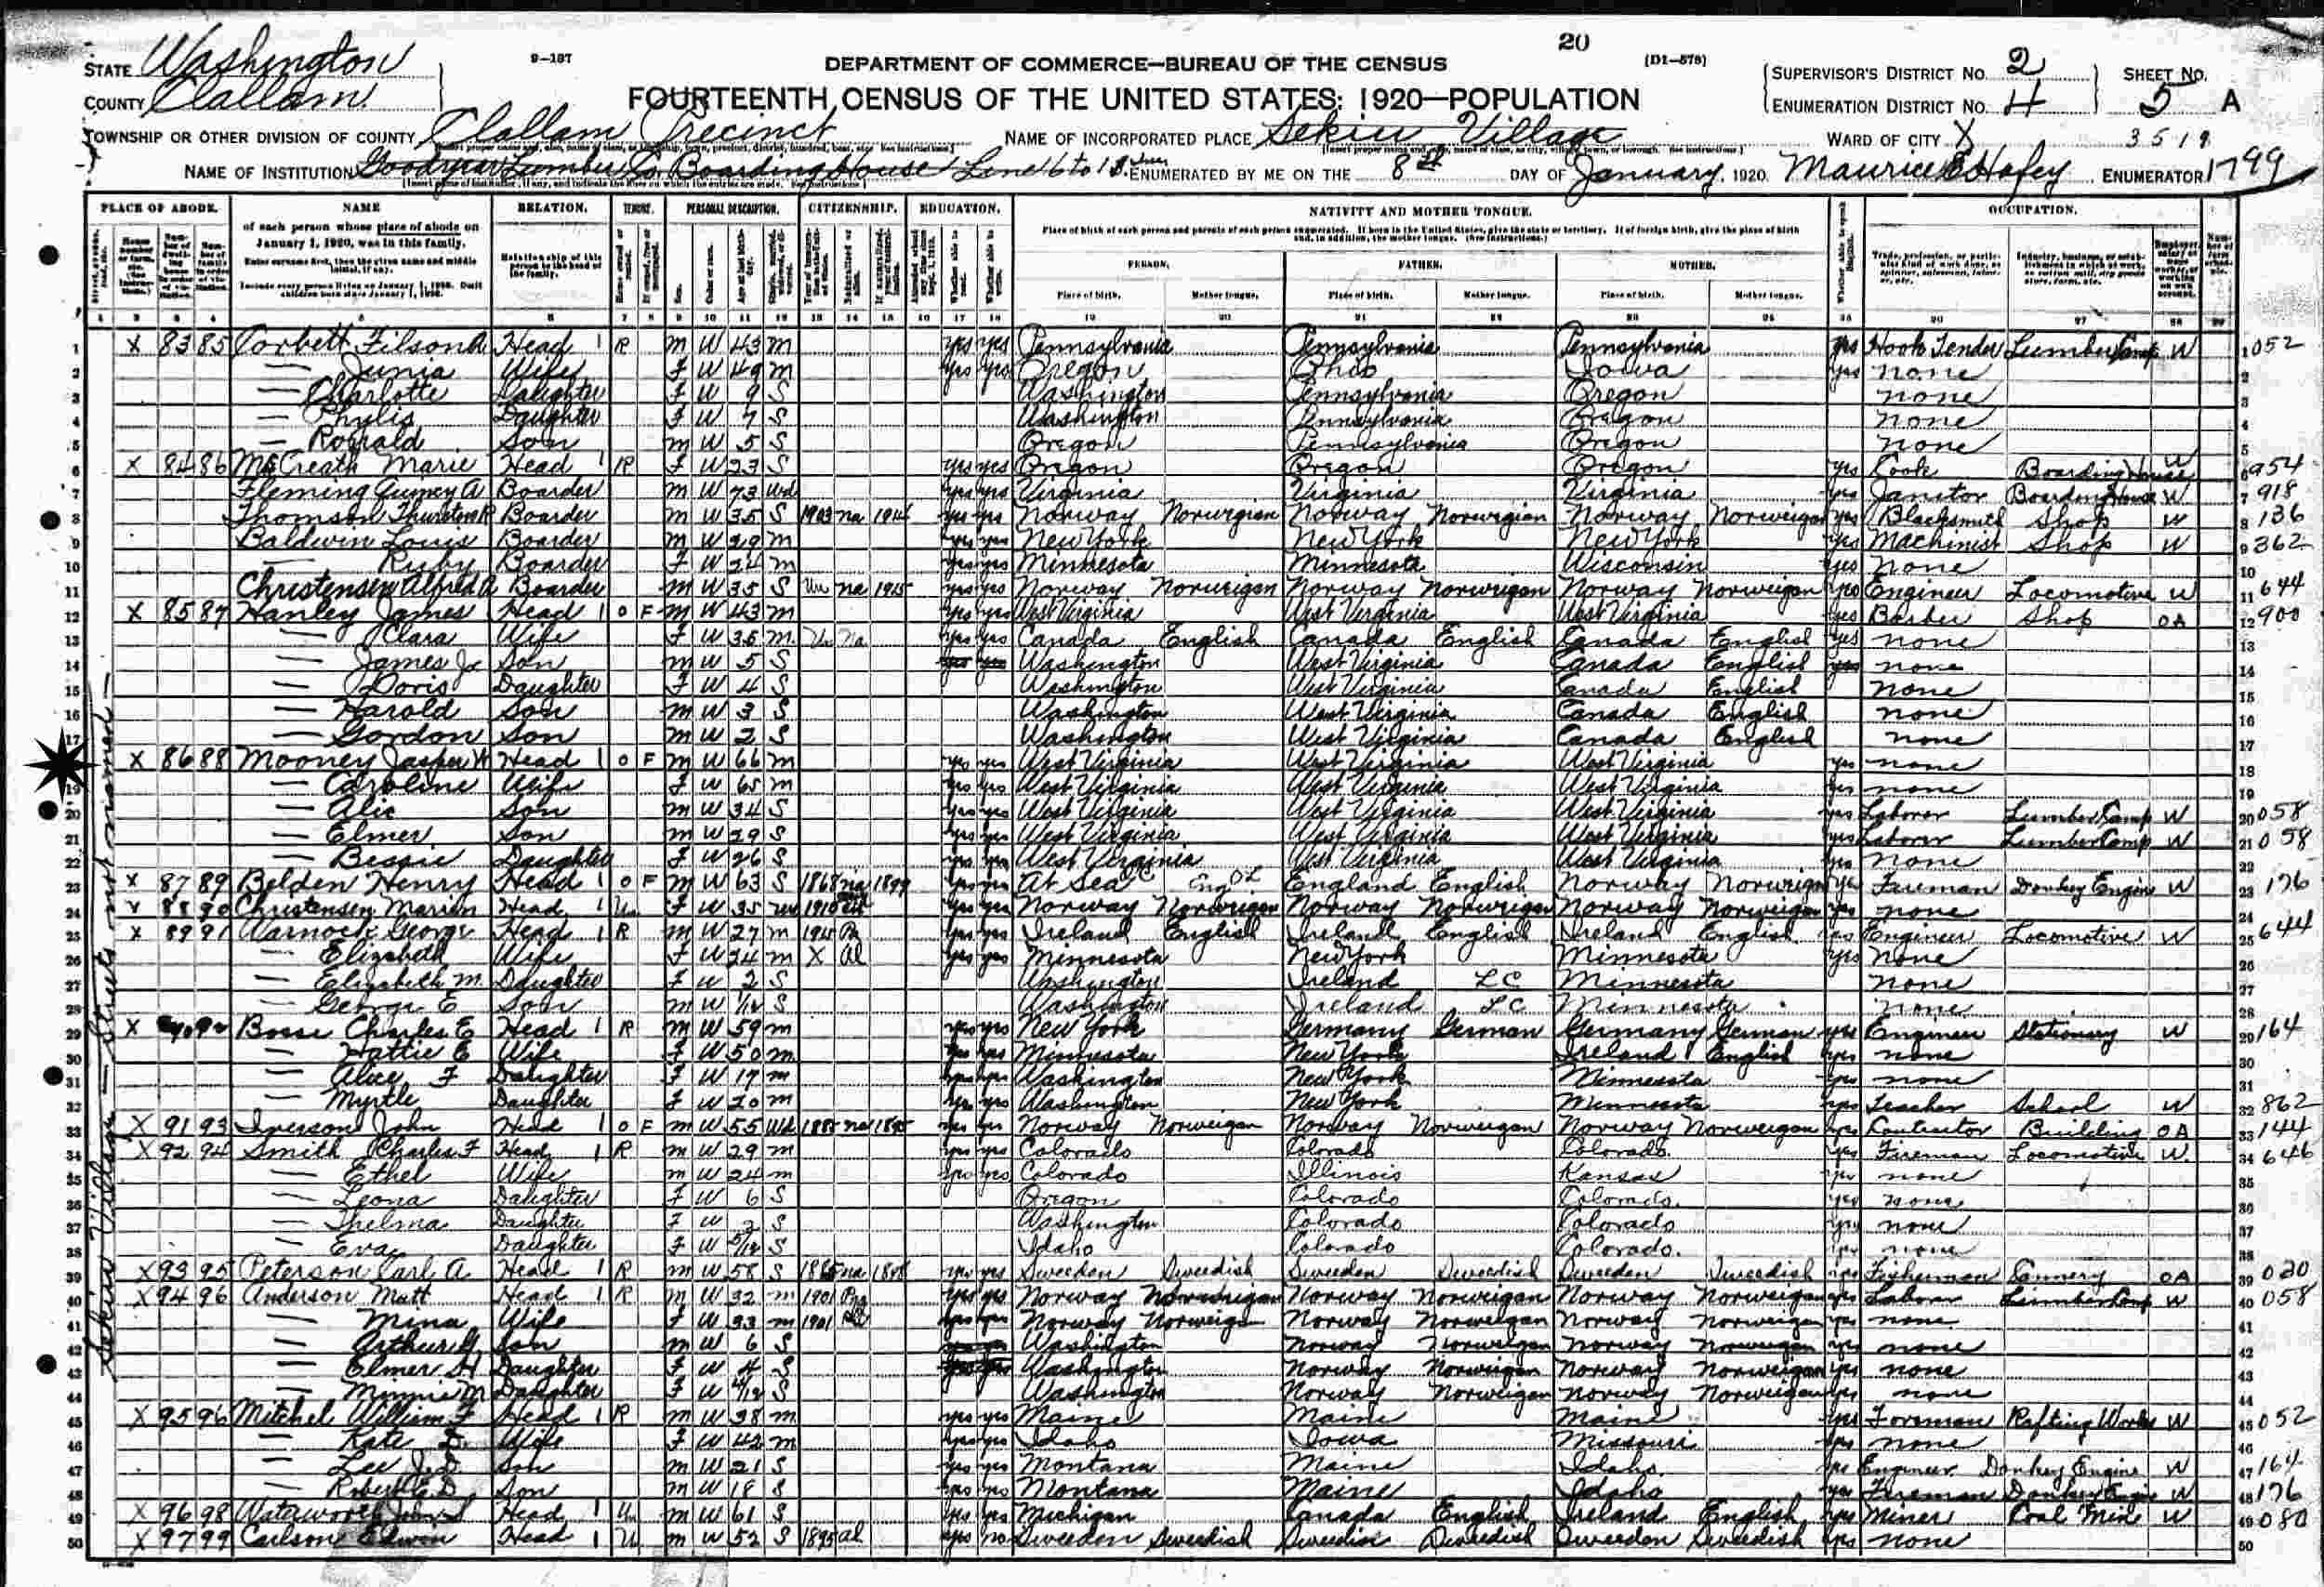 20
STATE Washington 9-137 DEPARTMENT OF COMMERCE—BUREAU OF THE CENSUS [D1-578] SUPERVISOR'S DISTRICT NO. 2 SHEET NO.
COUNTY Clallam FOURTEENTH CENSUS OF THE UNITED STATES: 1920—POPULATION ENUMERATION DISTRICT NO. 4 5 A
TOWNSHIP OR OTHER DIVISION OF COUNTY Clallam Precinct NAME OF INCORPORATED PLACE Sekiu Village WARD OF CITY X 3519
NAME OF INSTITUTION Goodyear Lumber Co Boarding House Line 6 to 11 ENUMERATED BY ME ON THE 8th DAY OF January, 1920. Maurice E Hafey ENUMERATOR 1799
PLACE OF ABODE. NAME RELATION. TENURE. PERSONAL DESCRIPTION. CITIZENSHIP. EDUCATION. NATIVITY AND MOTHER TONGUE. OCCUPATION.
of each person whose place of abode on January 1, 1920, was in this family.
Enter surname first, then the given name and middle initial, if any.
Include every person living on January 1, 1920. Omit children born since January 1, 1920.
Relationship of this person to the head of the family.
Place of birth of each person and parents of each person enumerated. If born in the United States, give the state or territory. If of foreign birth, give the place of birth and, in addition, the mother tongue. (See instructions.)
PERSON. FATHER. MOTHER.
Place of birth. Mother tongue. Place of birth. Mother tongue. Place of birth. Mother tongue.
Sekiu Village — Streets not named —
1 X 83 85 Corbett Filson A Head 1 R m W 43 m yes yes Pennsylvania Pennsylvania Pennsylvania yes Hook Tender Lumber Camp W 1 052
2 — Junia Wife F W 49 m yes yes Oregon Ohio Iowa yes none 2
3 — Charlotte Daughter F W 9 S Washington Pennsylvania Oregon none 3
4 — Phylis Daughter F W 7 S Washington Pennsylvania Oregon none 4
5 — Ronald Son m W 5 S Oregon Pennsylvania Oregon none 5
6 X 84 86 McCreath Marie Head 1 R F W 23 S yes yes Oregon Oregon Oregon yes Cook Boarding House W 6 954
7 Fleming A Boarder m W 73 Wd yes yes Virginia Virginia Virginia yes Janitor Boarding House W 7 918
8 Thomson Boarder m W 35 S 1903 na 1914 yes yes Norway Norwegian Norway Norwegian Norway Norweigan yes Blacksmith Shop W 8 136
9 Baldwin Louis Boarder m W 29 m yes yes New York New York New York yes Machinist Shop W 9 362
10 — Ruby Boarder F W 24 m yes yes Minnesota Minnesota Wisconsin yes none 10
11 Christensen Alfred A Boarder m W 35 S Un na 1915 yes yes Norway Norweigan Norway Norweigan Norway Norweigan yes Engineer Locomotive W 11 644
12 X 85 87 Hanley James Head 1 O F m W 43 m yes yes West Virginia West Virginia West Virginia yes Barber Shop OA 12 900
13 — Clara Wife F W 35 m Un Na yes yes Canada English Canada English Canada English yes none 13
14 — James Jr Son m W 5 S yes yes Washington West Virginia Canada English yes none 14
15 — Doris Daughter F W 4 S Washington West Virginia Canada English none 15
16 — Harold Son m W 3 S Washington West Virginia Canada English none 16
17 — Gordon Son m W 2 S Washington West Virginia Canada English none 17
18 X 86 88 Mooney Jasper W Head 1 O F m W 66 m yes yes West Virginia West Virginia West Virginia yes none 18
19 — Caroline Wife F W 65 m yes yes West Virginia West Virginia West Virginia yes none 19
20 — Alic Son m W 34 S yes yes West Virginia West Virginia West Virginia yes Laborer Lumber Camp W 20 058
21 — Elmer Son m W 29 S yes yes West Virginia West Virginia West Virginia yes Laborer Lumber Camp W 21 058
22 — Bessie Daughter F W 26 S yes yes West Virginia West Virginia West Virginia yes none 22
23 X 87 89 Belden Henry Head 1 O F m W 63 S 1868 na 1899 yes yes At Sea Eng OL England English Norway Norweign yes Fireman Donkey Engin W 23 176
24 X 88 90 Christensen Marion Head 1 Un F W 35 1910 yes yes Norway Norweigan Norway Norweigan Norway Norweigan yes none 24
25 X 89 91 Warnock George Head 1 R m W 27 m Pa yes yes Ireland English Ireland English Ireland English yes Engineer Locomotive W 25 644
26 — Elizabeth Wife F W 24 m X Al yes yes Minnesota New York Minnesota yes none 26
27 — Elizabeth M. Daughter F W 2 S Washington Ireland LC Minnesota none 27
28 — George E Son m W S Washington Ireland LC Minnesota none 28
29 X 90 92 Bosse Charles E Head 1 R m W 59 m yes yes New York Germany German Germany German yes Engineer Stationary W 29 164
30 — Hattie E Wife F W 50 m yes yes Minnesota New York Ireland English yes none 30
31 — Alice F Daughter F W 17 m yes yes Washington New York Minnesota yes none 31
32 — Myrtle Daughter F W 20 m yes yes Washington New York Minnesota yes Teacher School W 32 862
33 X 91 93 Iverson John Head 1 O F m W 55 Wd 1885 na 1895 yes yes Norway Norweigan Norway Norweigan Norway Norweigan yes Contractor Building OA 33 144
34 X 92 94 Smith Charles F Head 1 R m W 29 m yes yes Colorado Colorado Colorado yes Fireman Locomotive W 34 646
35 — Ethel Wife m W 24 m yes yes Colorado Illinois Kansas yes none 35
36 — Leona Daughter F W 6 S Oregon Colorado Colorado yes none 36
37 — Thelma Daughter F W 2 S Washington Colorado Colorado yes none 37
38 — Eva Daughter F W 5/12 S Idaho Colorado Colorado yes none 38
39 X 93 95 Peterson Carl A. Head 1 R m W 58 S na yes yes Sweeden Sweedish Sweeden Sweedish Sweeden Sweedish yes Fisherman Cannery OA 39 020
40 X 94 96 Anderson Matt Head 1 R m W 32 m 1901 Pa yes yes Norway Norweigan Norway Norweigan Norway Norweigan yes Labor Lumber Camp W 40 058
41 — Mina Wife F W 33 m 1901 yes yes Norway Norweigan Norway Norweigan Norway Norweigan yes none 41
42 — Arthur Son m W 6 S Washington Norway Norweigan Norway Norweigan yes none 42
43 — Elmer H Daughter F W 4 S Washington Norway Norweigan Norway Norweigan yes none 43
44 — Minnie M Daughter F W S Washington Norway Norweigan Norway Norweigan yes none 44
45 X 95 96 Mitchel William F Head 1 R m W 38 m yes yes Maine Maine Maine yes Foreman Rafting Works W 45 052
46 — Kate D. Wife F W 42 m yes yes Idaho Iowa Missouri yes none 46
47 — Lee J.D. Son m W 21 S yes yes Montana Maine Idaho yes Engineer Donkey Engine W 47 164
48 — D Son m W 18 S yes yes Montana Maine Idaho yes Fireman Donkey Engin W 48 176
49 X 96 98 Waterworth John S Head 1 Un m W 61 S yes yes Michigan Canada English Ireland English yes Miner Coal Mine W 49 080
50 X 97 99 Carlson Edwin Head 1 U m W 52 S 1895 al yes no Sweeden Sweedish Sweeden Sweedish Sweeden Sweedish yes none 50